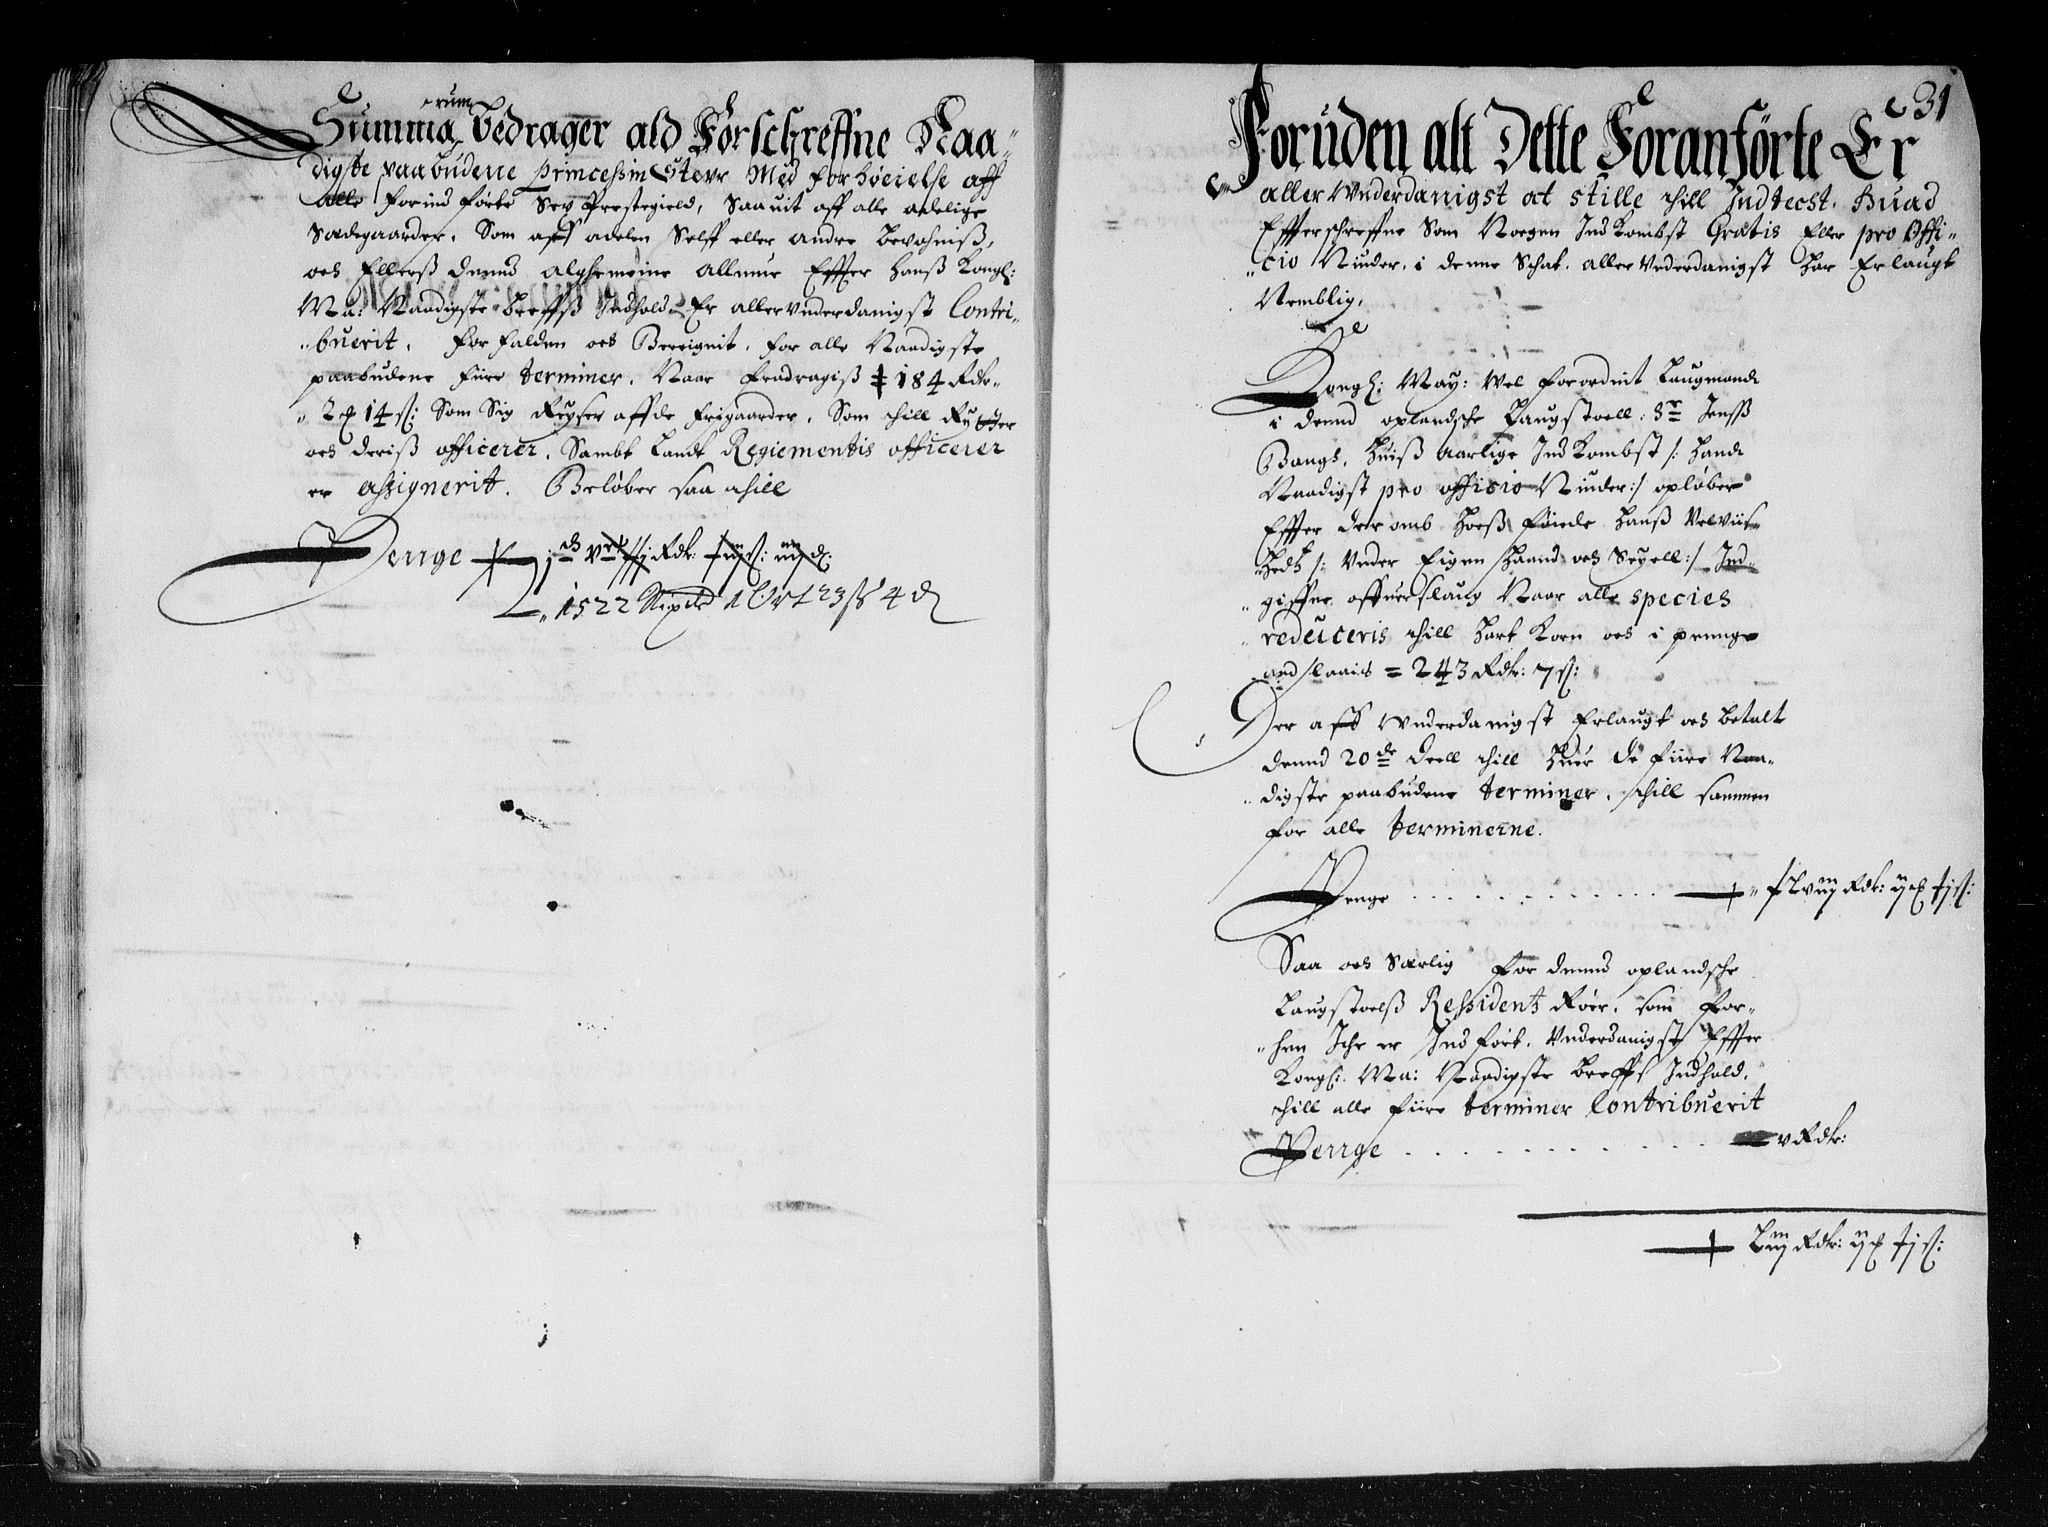 Summarum Bedrager ald Forschreffne Naa-
digste paabudene Princessin Steur Med forhøielse aff
alle forind førte Sex Prestegield, Saauit aff alle adelige
Sædegaarder, Som aff adelen Selff eller andre bevohniß,
och Ellerß dennd alghemeine Allmue Effter Hanß Kongl:
Ma: Naadigste breffß Indhold Er allervnderdanigst Contri-
buerit, forfalden och Beregnit, for alle Naadigste
paabudene fiire terminer, Naar fradragiß 184 Rdr-
2 14 s: Som Sig Reyser aff de frigaarder, Som thill Rytter
och deriß officerer, Sambt Landt Regiementis officerer
er assignerit. Beløber saa thill
Penge
1522 Rixdr 1 Ort 23 s 4 d
31
Foruden alt Dette Foranførte Er
aller Vnderdanigst at stille thill Indtecht, Huad
Effterschreffne Som Nogen Indkombst Gratis Eller pro Offi-
cio Niuder, i denne Schat, aller Vnderdanigst har Erlaugt
Nemblig,
Kongl: May: Vel forordnit Laugmand
i dennd oplandsche Laugstoell, Hr Jenß
Bangs, Huiß aarlige Indkombst /: Hand
Naadigst pro officio Niuder :/ opløber
Effter der omb hoeß føiede Hanß Velviis-
hedtz /: Vnder Eigen Haand och Seyell :/ Ind-
giffne offuerslaug Naar alle species
reduceris thill hart Korn och i penge
andslaais = 243 Rdr: 7 s:
Der aff Vnderdanigst Erlaugt och betalt
dennd 20de deell thill huer de fiire Naa-
digste paabudene terminer, thill sammen
for alle terminerne.
Penge
Saa och Særlig for dennd oplandsche
Laugstoelß Ressidentz Røer, som for-
hen Iche er Indført, Vnderdanigst Effter
Kongl: Ma: Naadigste breffs Indhold,
thill alle fiire terminer Contribuerit
Penge v Rdr: